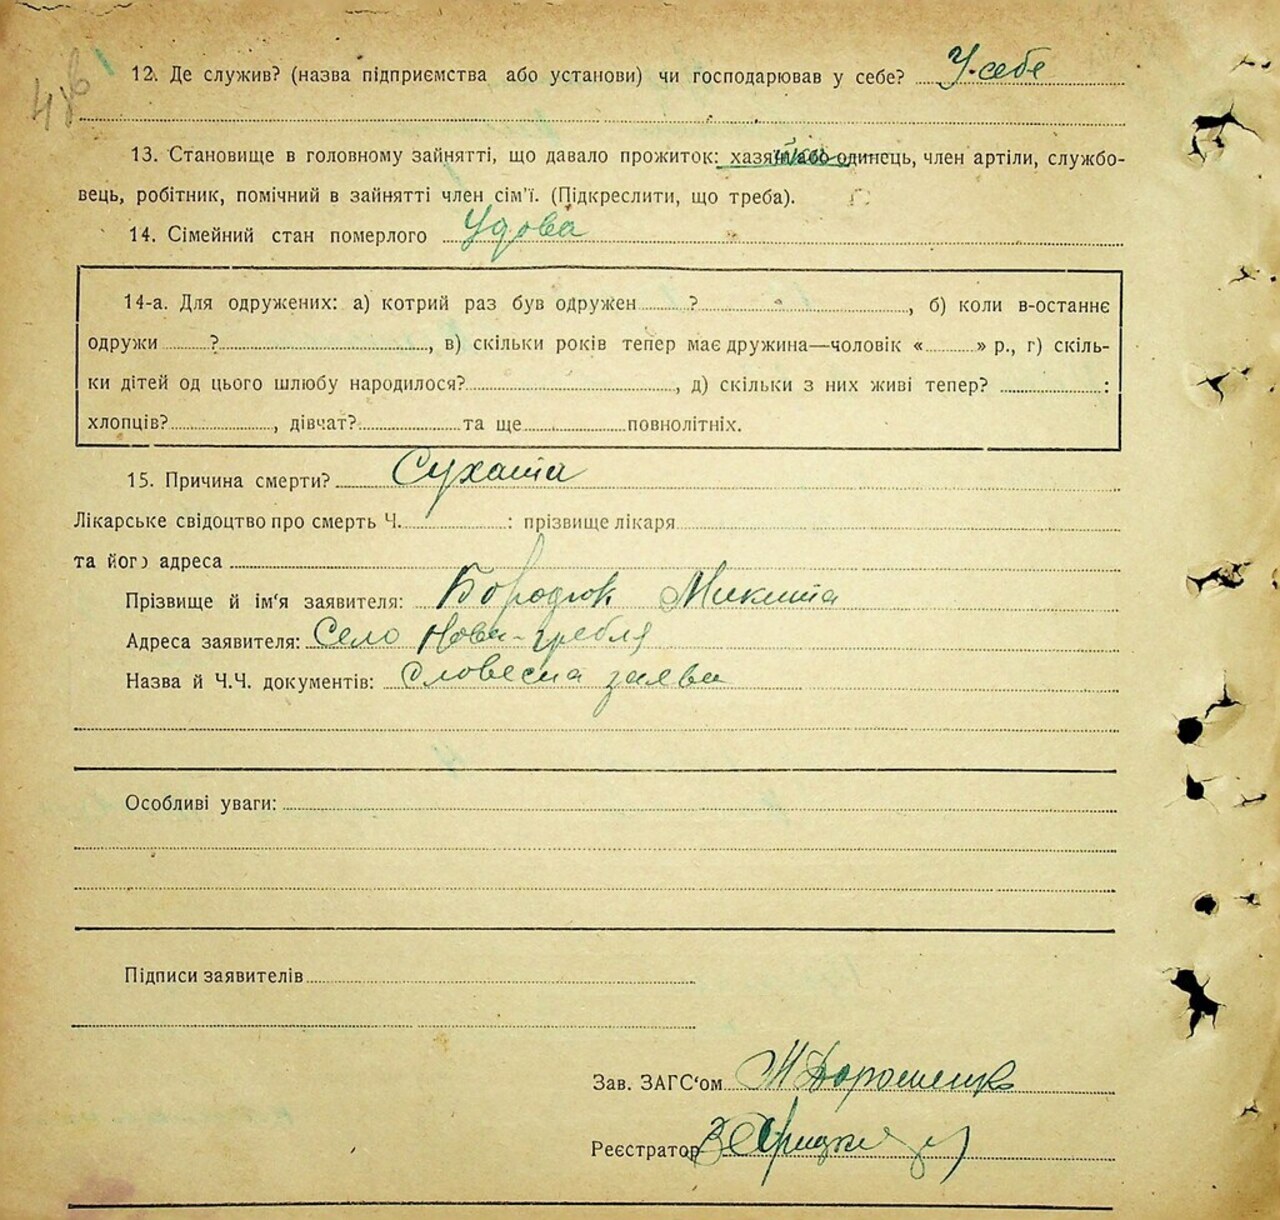 12. Де служив? (назва підприємства або установи) чи господарював у себе? У себе
13. Становище в головному зайнятті, що давало прожиток: хазяїн або одинець, член артіли, службо-
вець, робітник, помічний в зайнятті член сім'ї. (Підкреслити, що треба).
14. Сімейний стан померлого Удова
14-а. Для одружених: а) котрий раз був одружен ? , б) коли в-останнє
одружи ? , в) скільки років тепер має дружина—чоловік « » р., г) скіль-
ки дітей од цього шлюбу народилося? , д) скільки з них живі тепер? :
хлопців? , дівчат? та ще повнолітніх.
15. Причина смерти? Сухота
Лікарське свідоцтво про смерть Ч. : прізвище лікаря
та його адреса
Прізвище й ім'я заявителя: Бородюк Микита
Адреса заявителя: Село Нова-гребля
Назва й Ч.Ч. документів: Словесна заява
Особливі уваги:
Підписи заявителів
Зав. ЗАГС'ом Дорошенко
Реєстратор